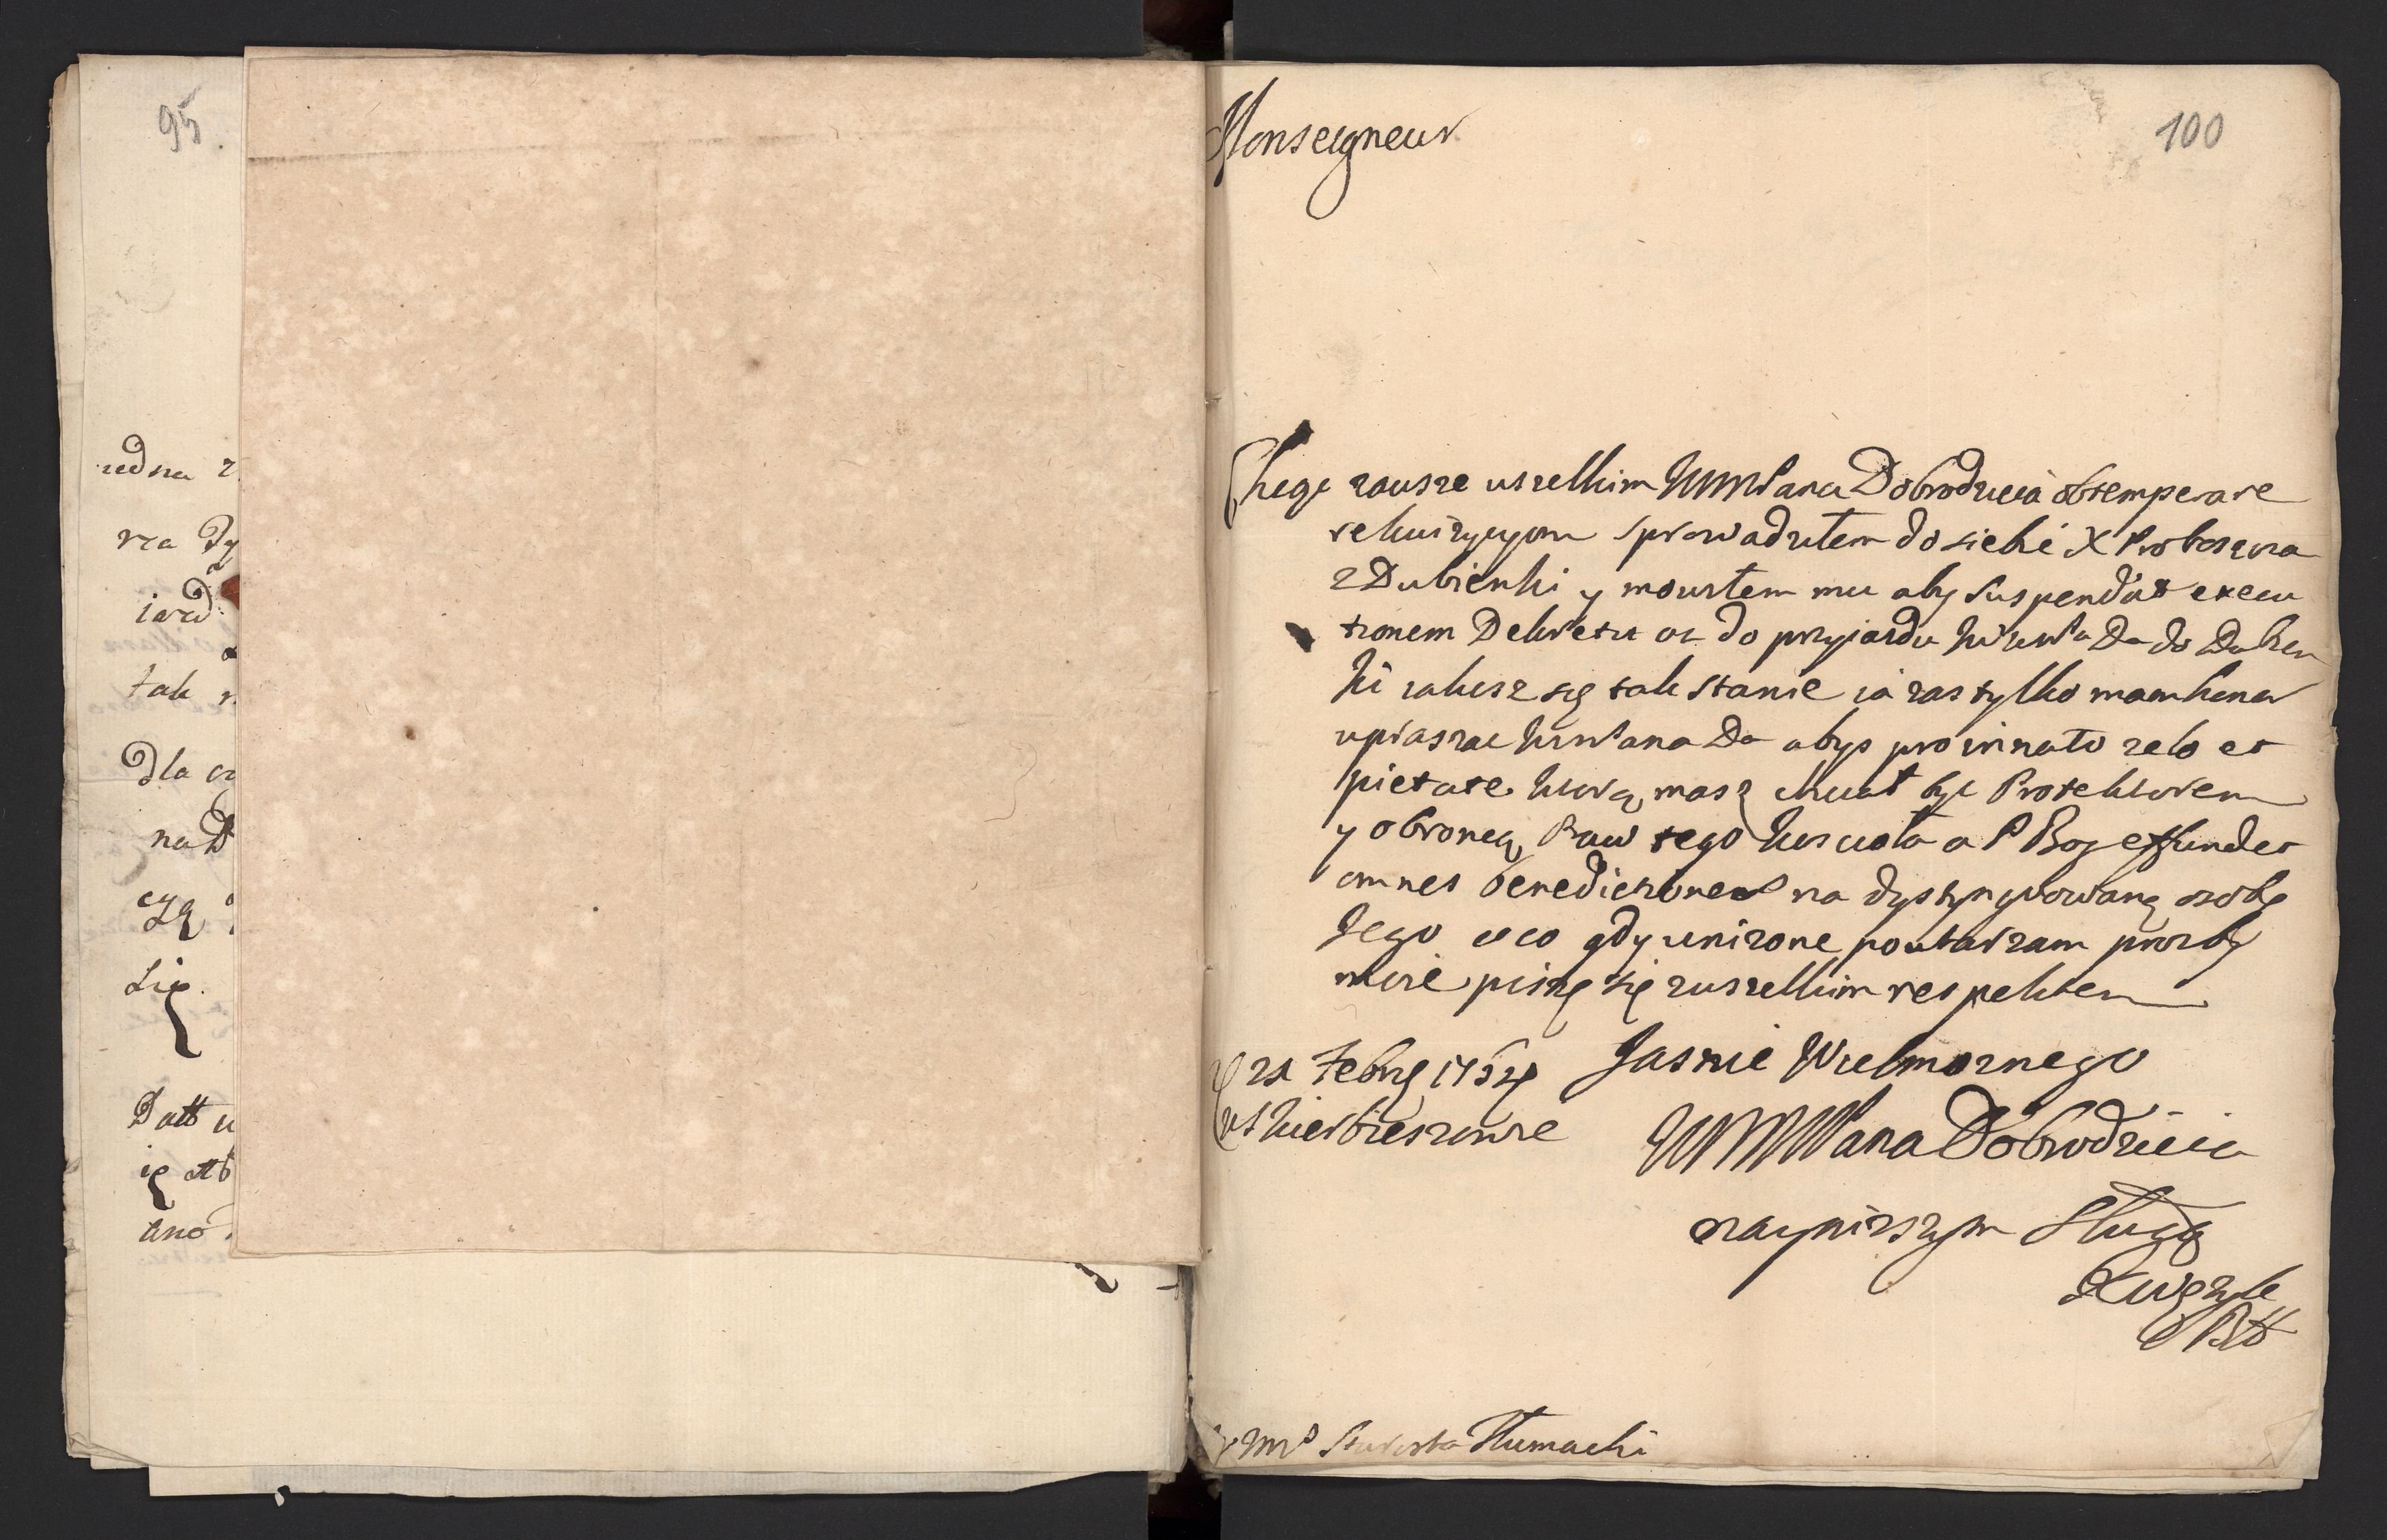 95.
iedna z
rza dy
iazd
tak
dla
nad
czą
się.
Datt
100
Monseigneur
Chcąc zawsze wszelkim WMMPana Dobrodzieia obtemperare
rekwizycyom sprowadziłem do siebie X Proboszcza
z Dubienki y mowiłem mu aby suspendał execu
tionem Dekretu az do przyiazdu WMPa Da do Dubien
ki iakosz się tak stanie ia zas tylko mam honor
upraszac WMPana Da abys pro innato zelo et
pietate ktorą masz chciał byc Protektorem
y obroncą Praw tego koscioła a P Bog effundet
omnes benedictiones na dystyngwowaną osobę
Jego o co gdy unizone powtarzam prozby
moie piszę się z wszelkim respektem
21 Febrg 1754 Jasnie Wielmoznego
w Skierbieszowie
WMMPana Dobrodzieia
naynizszym Sługą
PKK
Mr Starosta Tłumacki